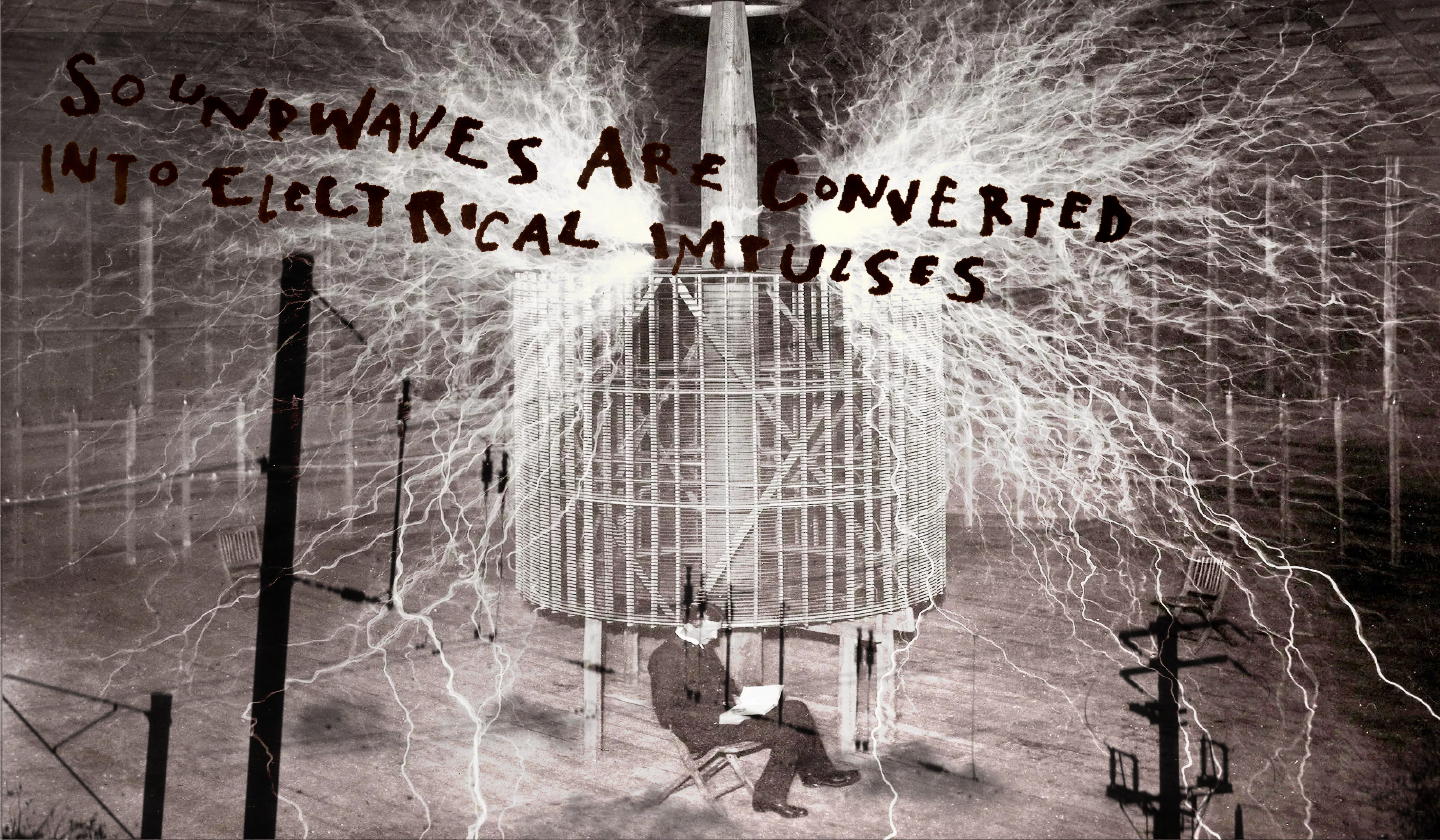 SOUNDWAVES ARE CONVERTED
INTO ELECTRICAL IMPULSES